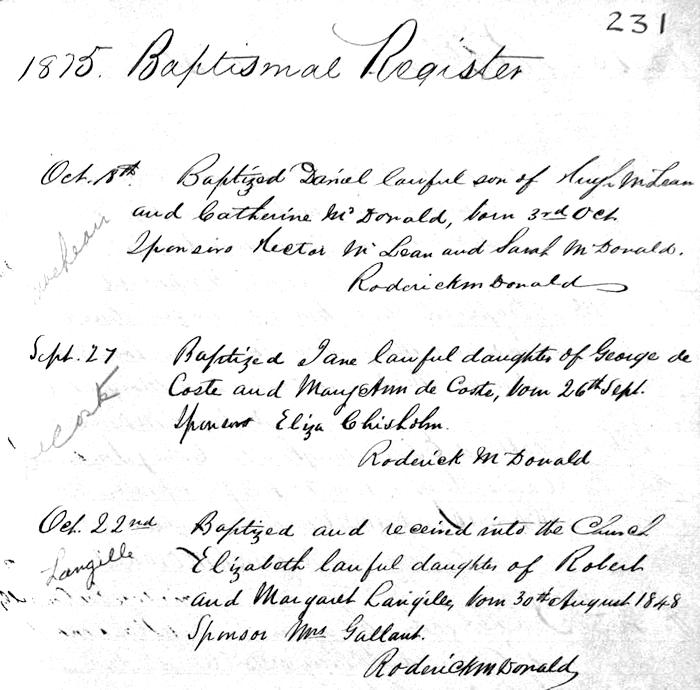 231
1875. Baptismal Register
Oct. 8th Baptized Daniel lawful son of Hugh McLean
and Catherine McDonald, born 3rd Oct.
Sponsors Hector McLean and Sarah McDonald.
Roderick McDonald
Sept. 27 Baptized Jane lawful daughter of George de
Coste and Mary Ann de Coste, born 26th Sept.
Sponsors Eliza Chisholm.
Roderick McDonald
Oct. 22nd Baptized and received into the Church
Langille Elizabeth lawful daughter of Robert
and Margaret Langille, born 30th August 1848
Sponsor Mrs Gallant.
Roderick McDonald